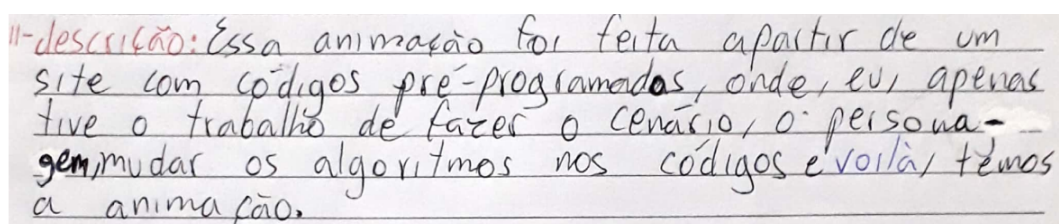 11-descrição: Essa animação foi feita apartir de um
site com códigos pré-programados, onde, eu, apenas
tive o trabalho de fazer o cenário, o persona-
gem, mudar os algoritmos nos códigos e voilà, temos
a animação.